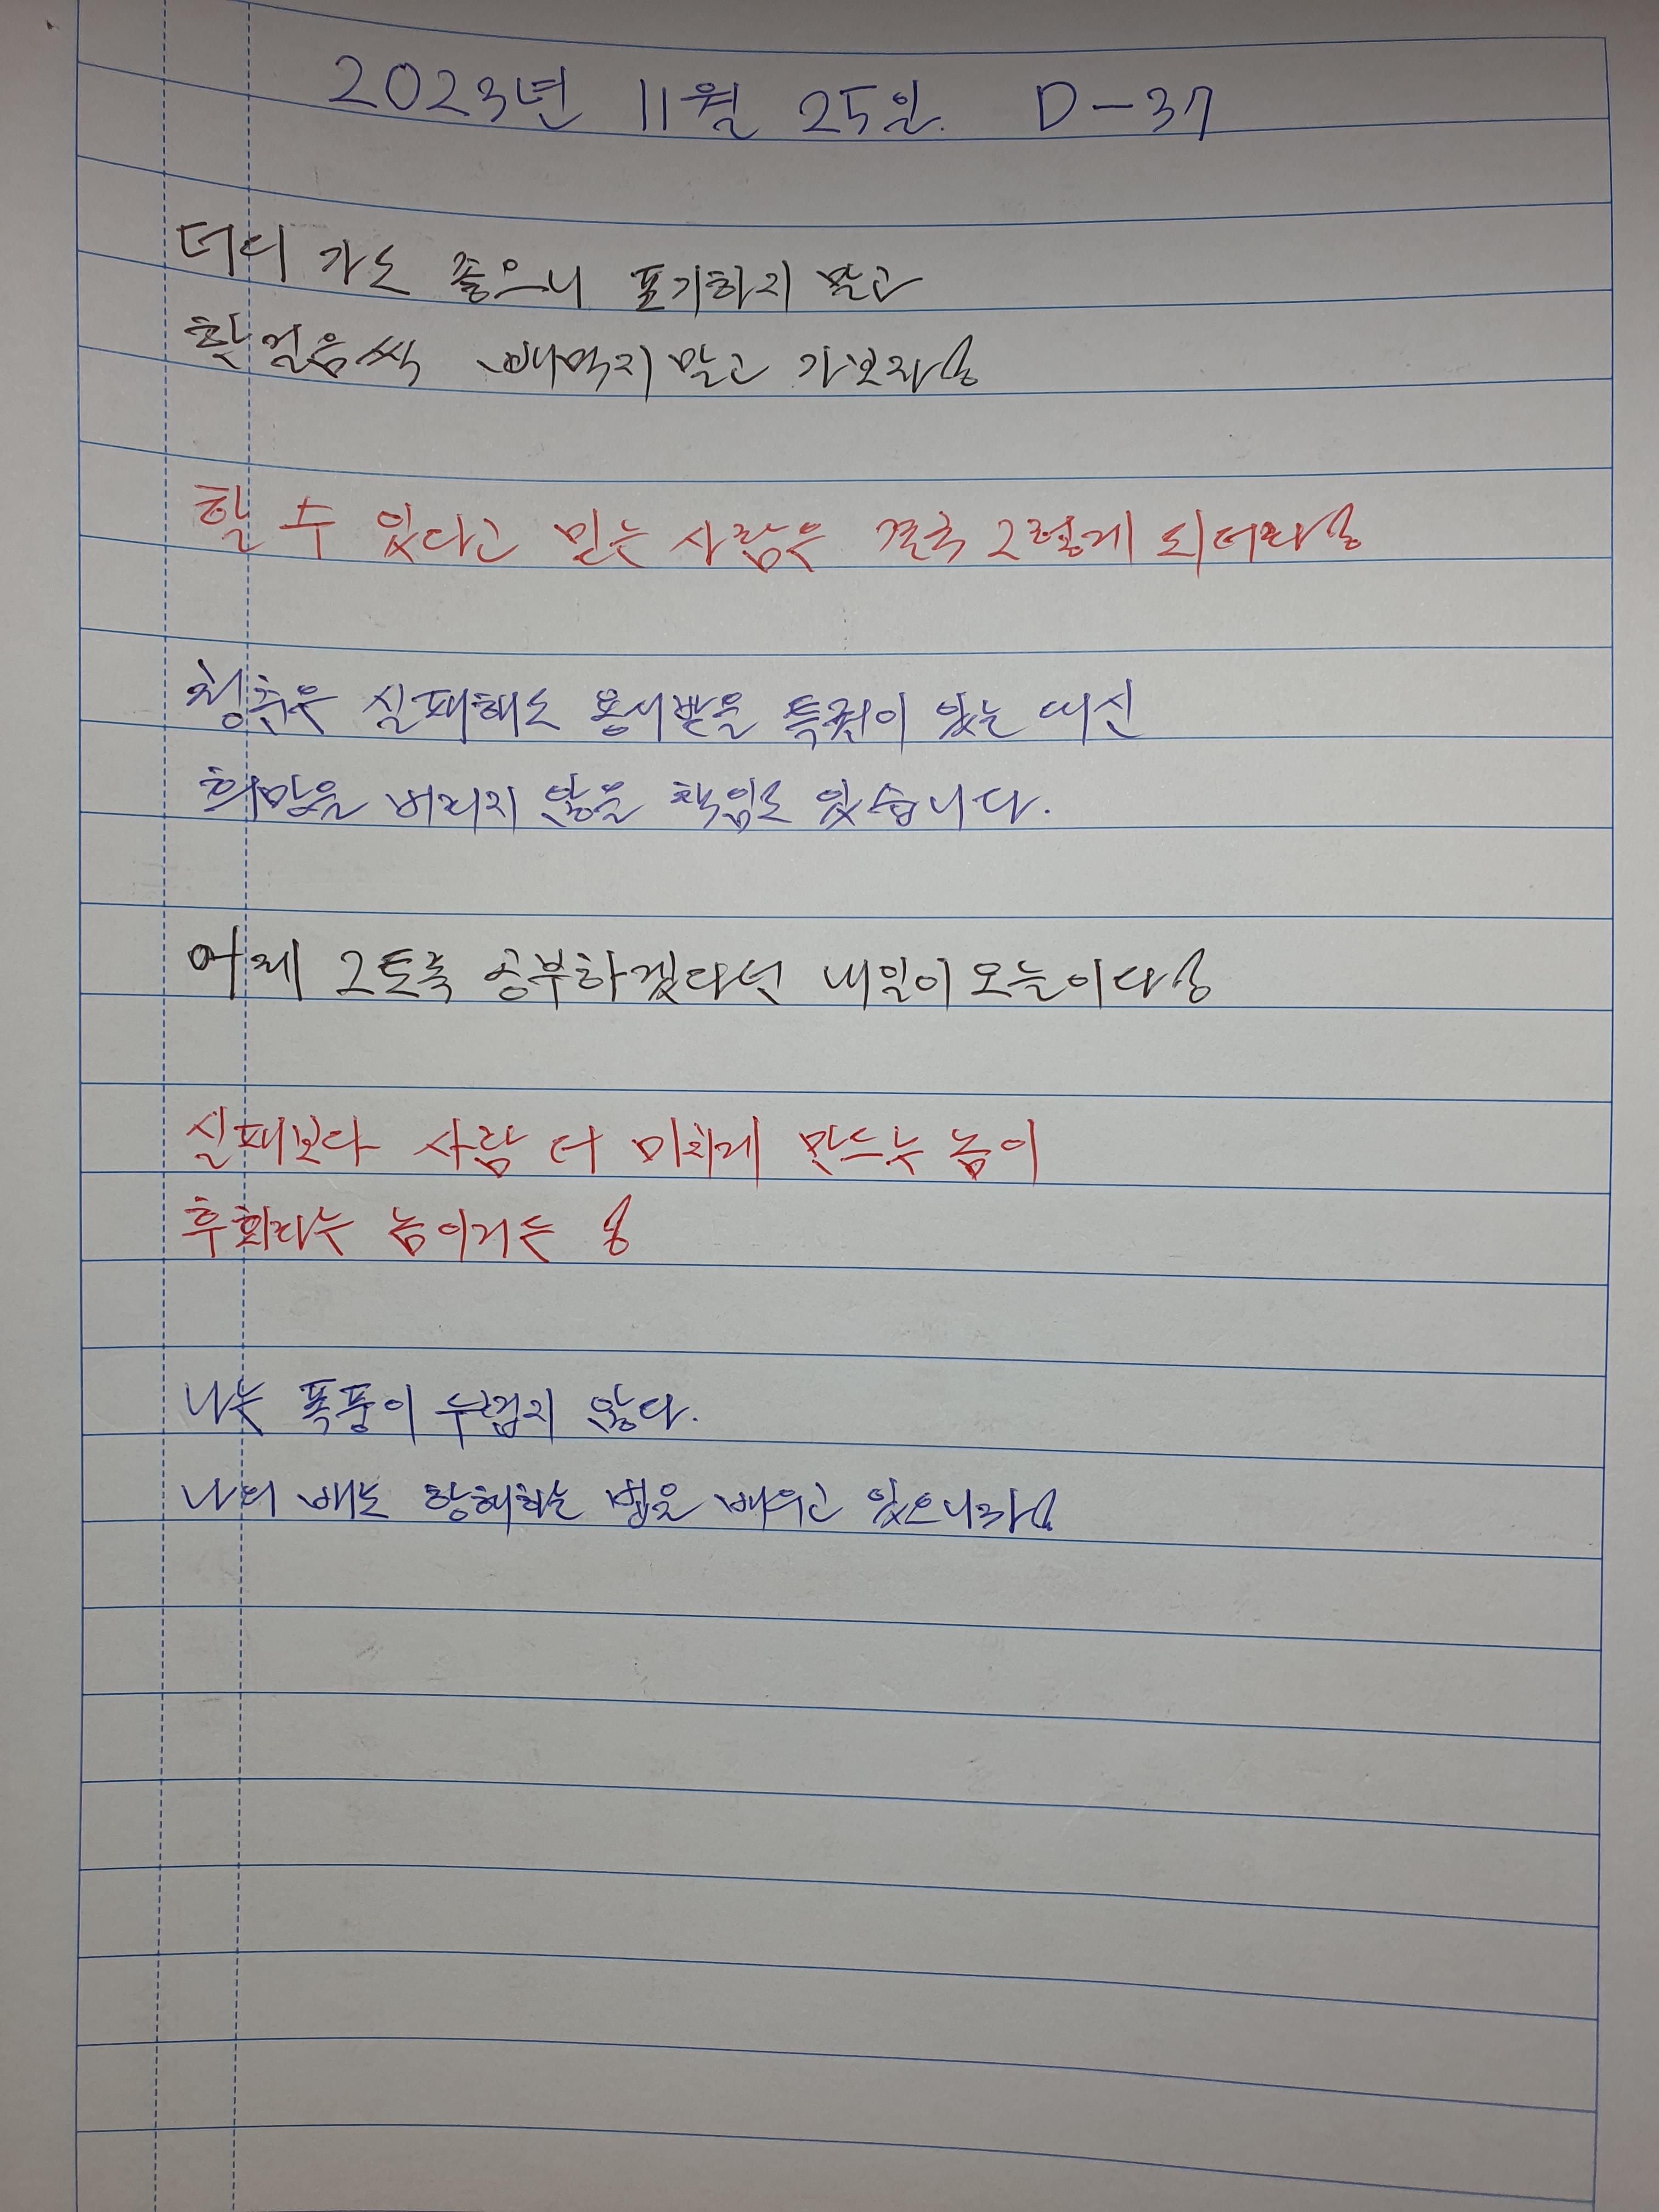 2023년 11월 25일. D-37
더디 가도 좋으니 포기하지 말고
한걸음씩 빼먹지 말고 가보자!
할 수 있다고 믿는 사람은 결국 그렇게 되더라!
청춘은 실패해도 용서받을 특권이 있는 대신
희망을 버리지 않을 책임도 있습니다.
어제 그토록 공부하겠다던 내일이 오늘이다!
실패보다 사람 더 미치게 만드는 놈이
후회라는 놈이거든!
나는 폭풍이 두렵지 않다.
나의 배는 항해하는 법을 배우고 있으니까!